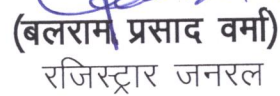 (बलराम प्रसाद वर्मा)
रजिस्ट्रार जनरल